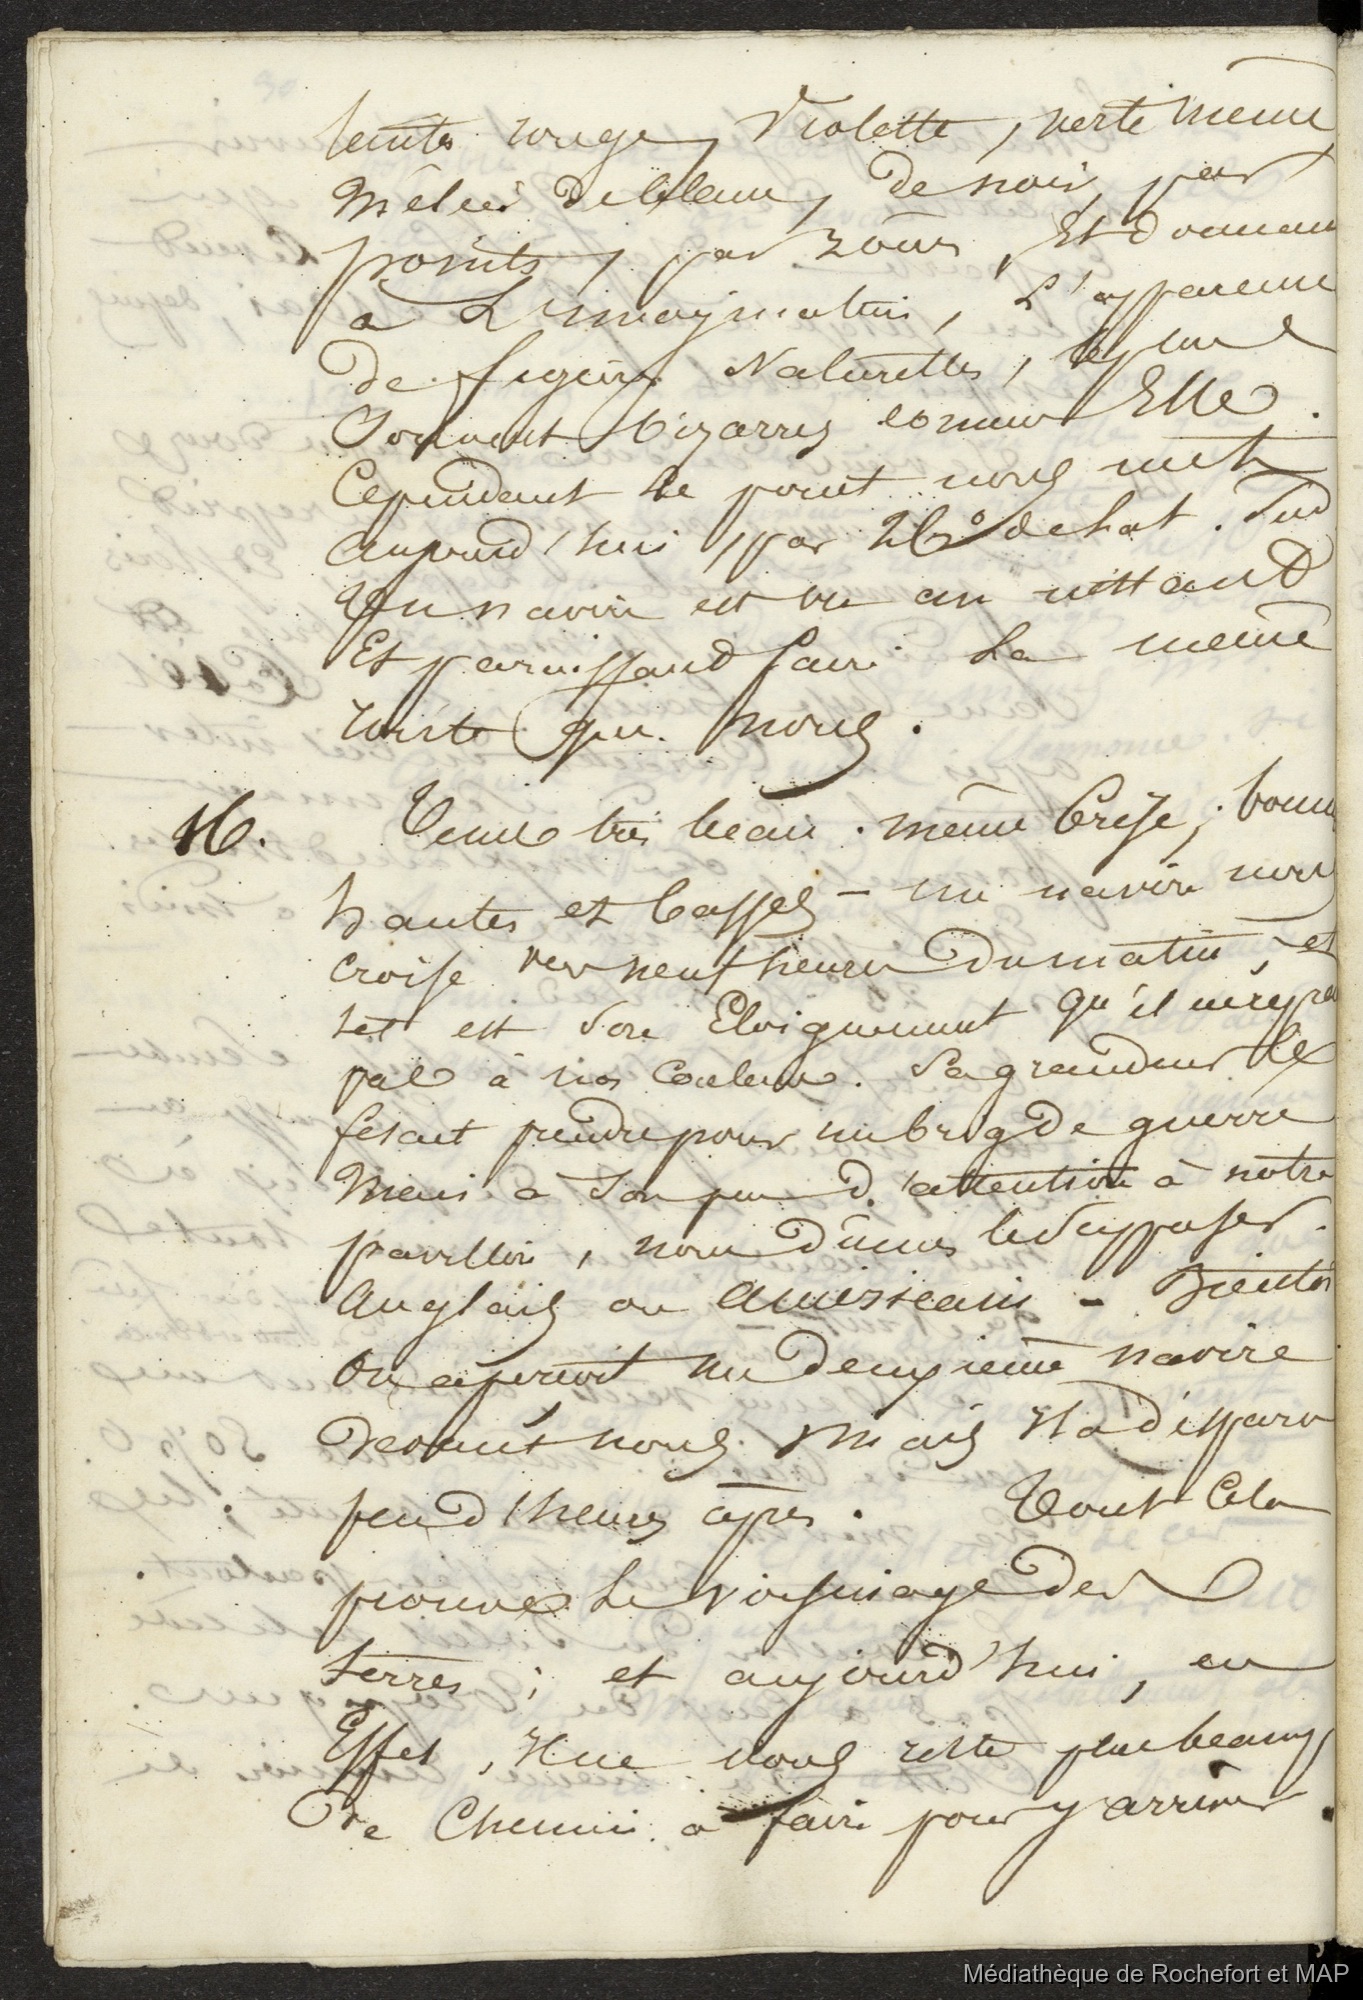 teintes rouge, violette, verte même
mêlées de bleue, de noir, par
points, par zônes, Et donnant
à L'imagination, L'apparence
de figures Naturelles, le plus
Souvent bizarres comme Elle.
Cependant le point nous met
aujourd'hui, par 26° de Lat. Sud
Un navire est vu au
Et paraissant faire La même
route que nous.
16. Tems très beau. même brise; bonnettes
hautes et basses - un navire nous
croise vers neuf heures du matin, et
tel est son Eloignement qu'il ne rep
pas à nos couleurs. Sa grandeur le
fesait prendre pour un brig de guerre
mais a son peu d'attention à notre
pavillon, nous dûmes le supposer
Anglais ou américain - Bientôt
On aperçoit un deuxième navire
devant nous mais Il a disparu
peu d'heures après. Tout Cela
prouve le voisinage des
terres; et aujourd'hui, en
Effet, Il ne nous reste plus beaucoup
De Chemin à faire pour y arriver.
Médiathèque de Rochefort et MAP